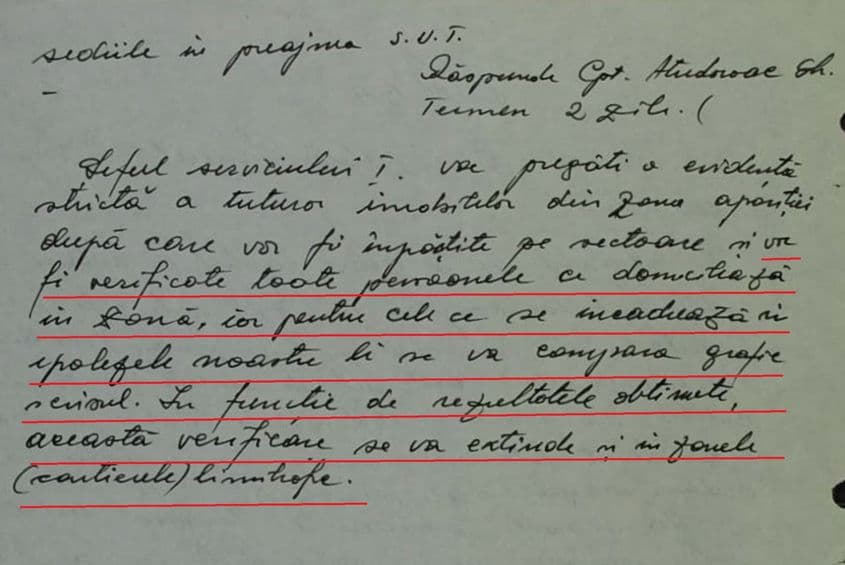 sediile în preajma S.U.T.
–
Răspunde Cpt. Atudoroae Gh.
Termen 2 zile. (
Șeful serviciului I. va pregăti o evidență
strictă a tuturor imobilelor din zona apariției
după care vor fi împățite pe sectoare și vor
fi verificate toate persoanele ce domiciliază
în zonă, iar pentru cele ce se încadrează în
ipotezele noastre li se va compara grafic
scrisul. În funcție de rezultatele obținute,
această verificare se va extinde și în zonele
(cartierele) limitrofe.